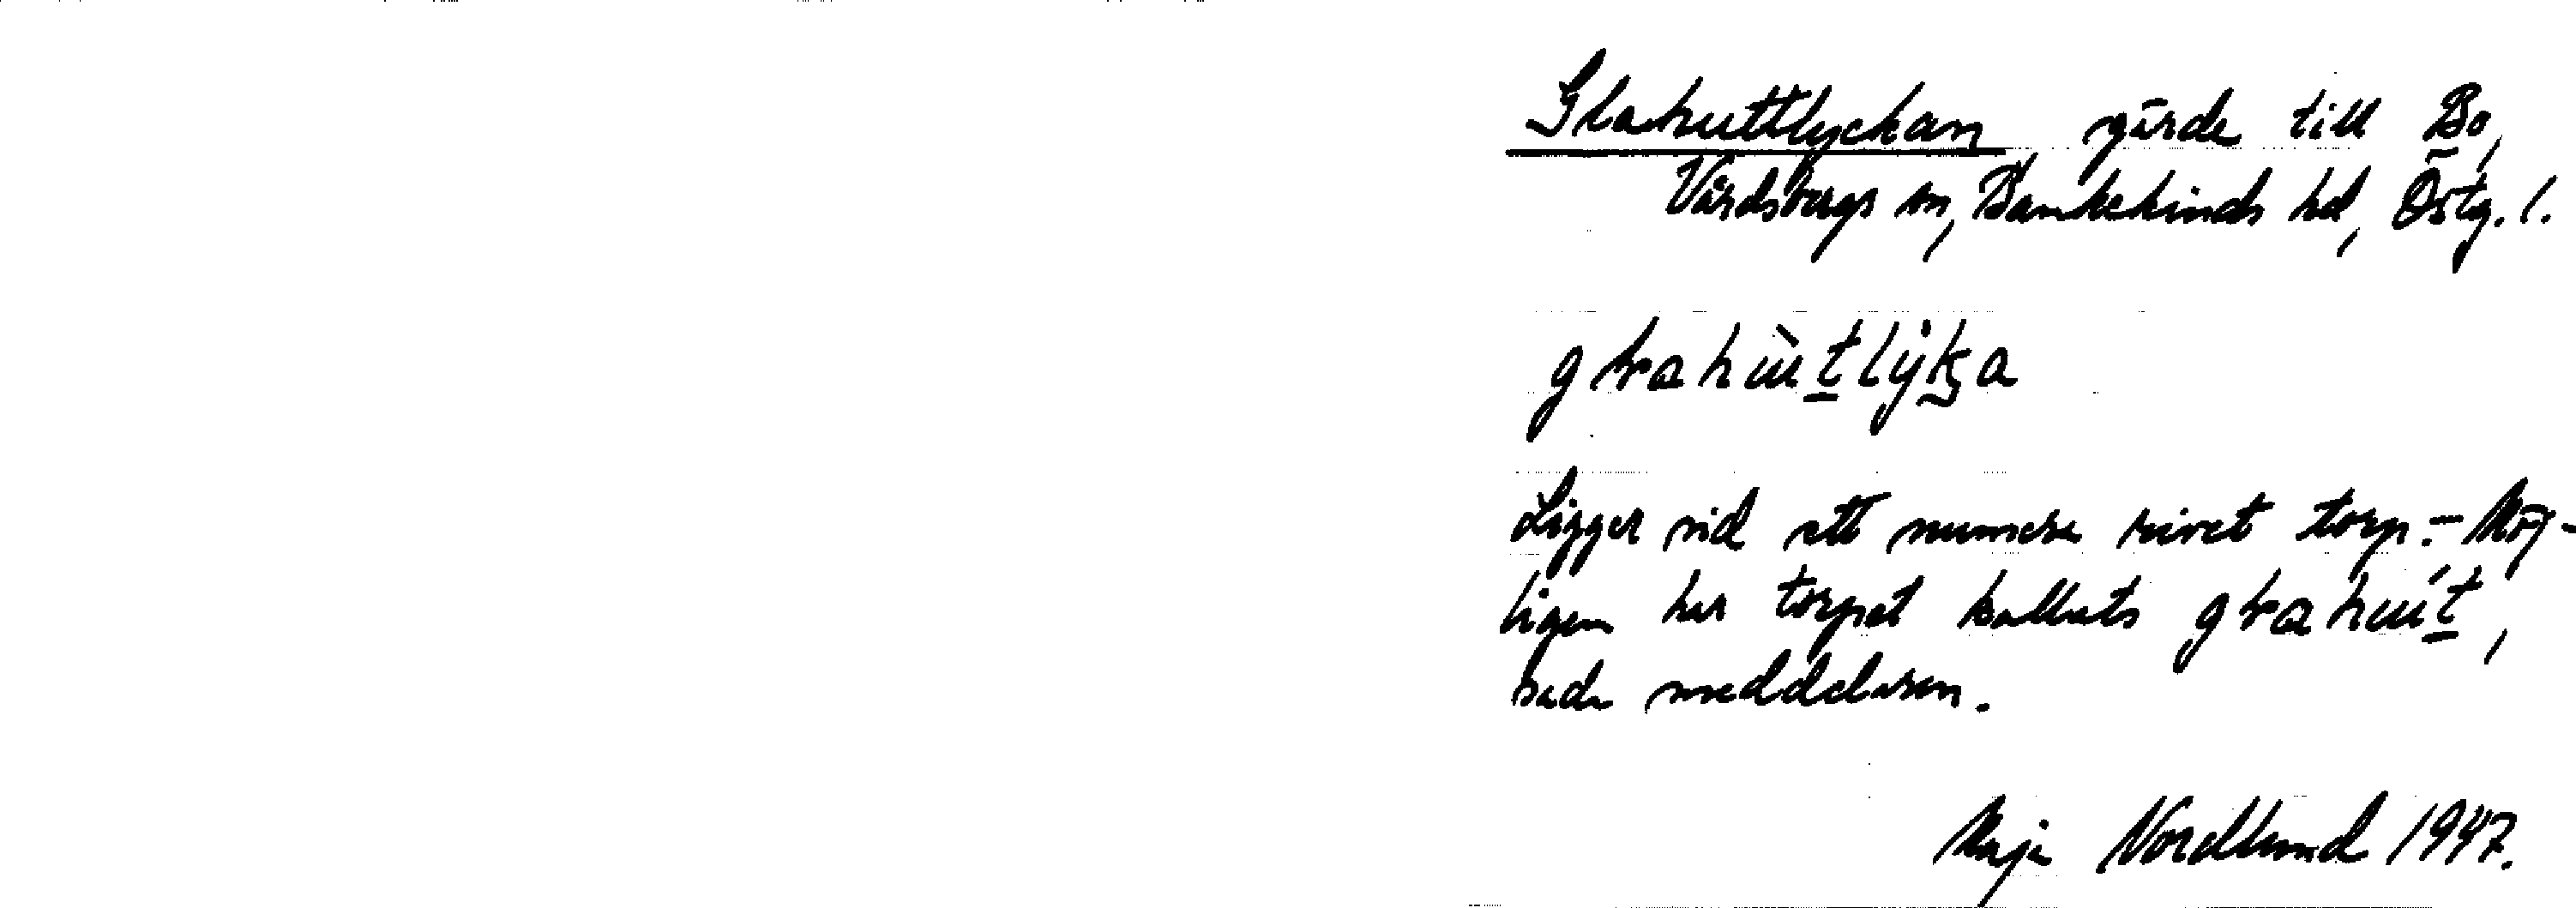 Glahuttlyckan gärde till Bo,
Vårdsbergs sn, Bankekinds hd, Östg. l.
Ligger vid ett numera rivet torp. - Möj-
ligen har torpet kallats
sade meddelaren.
Maja Nordlund 1947.